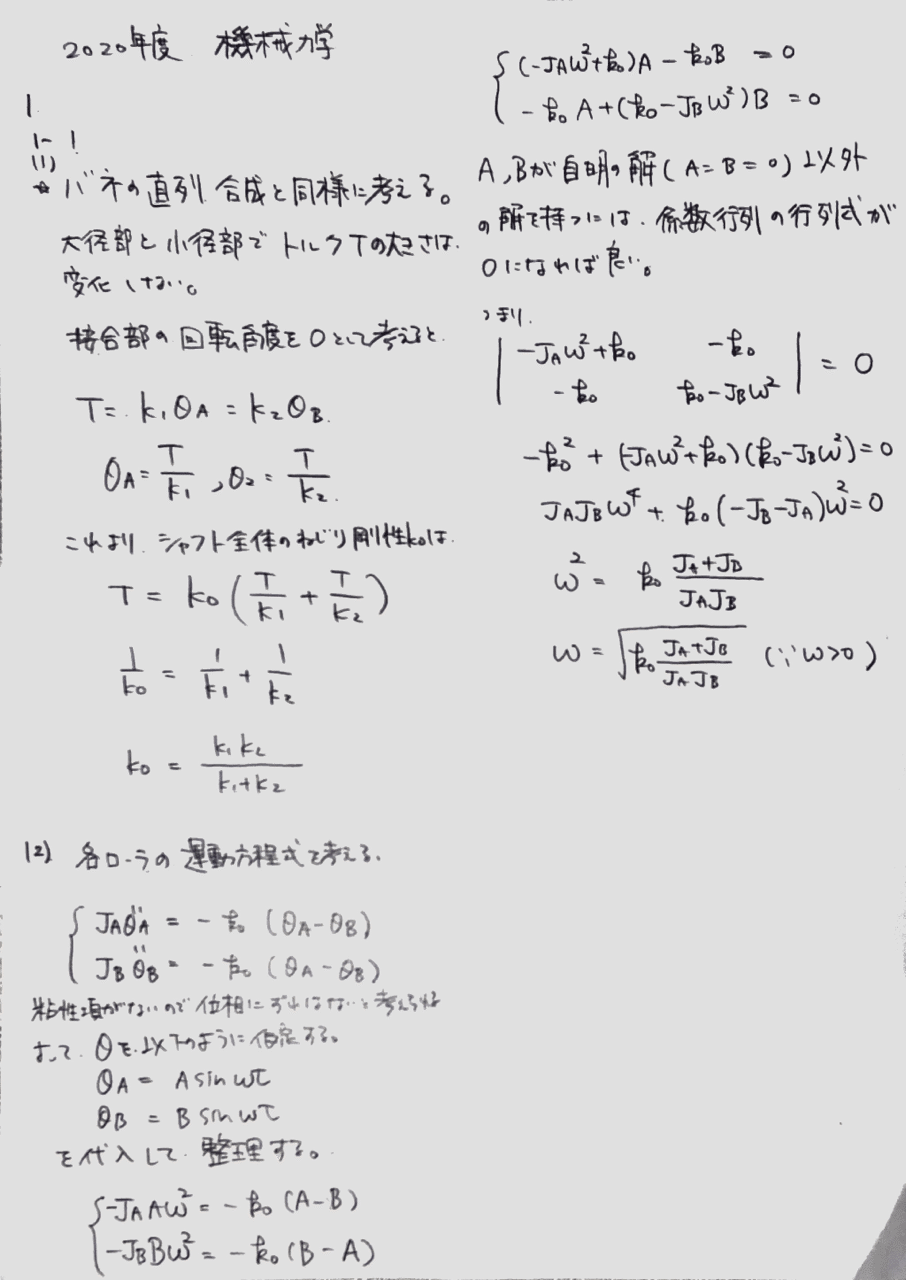 2020年度 機械力学
1.
1-1
(1)
☆ バネの直列合成と同様に考える。
大径部と小径部でトルクTの大きさは、
変化しない。
接合部の回転角度を0として考えると、
T = k₁θA = k₂θB.
θA = T/k₁ , θ₂ = T/k₂.
これより、シャフト全体のねじり剛性k₀は、
T = k₀(T/k₁ + T/k₂)
1/k₀ = 1/k₁ + 1/k₂
k₀ = k₁k₂/(k₁+k₂)
(2) 各ローラの運動方程式を考える。
{ JAθ̈A = -k₀(θA-θB)
JBθ̈B = -k₀(θA-θB)
粘性項がないので位相にずれはないと考えられる
よって、θを以下のように仮定する。
θA = A sin ωt
θB = B sin ωt
を代入して、整理する。
{ -JAAω² = -k₀(A-B)
-JBBω² = -k₀(B-A)
{ (-JAω²+k₀)A - k₀B = 0
-k₀A+(k₀-JBω²)B = 0
A,Bが自明の解(A=B=0)以外
の解を持つには、係数行列の行列式が
0になれば良い。
つまり、
| -JAω²+k₀ -k₀ |
| -k₀ k₀-JBω² | = 0
-k₀² + (-JAω²+k₀)(k₀-JBω²)=0
JAJBω⁴ + k₀(-JB-JA)ω²=0
ω² = k₀ (JA+JB)/(JAJB)
ω = √(k₀ (JA+JB)/(JAJB)) (∵ω>0)